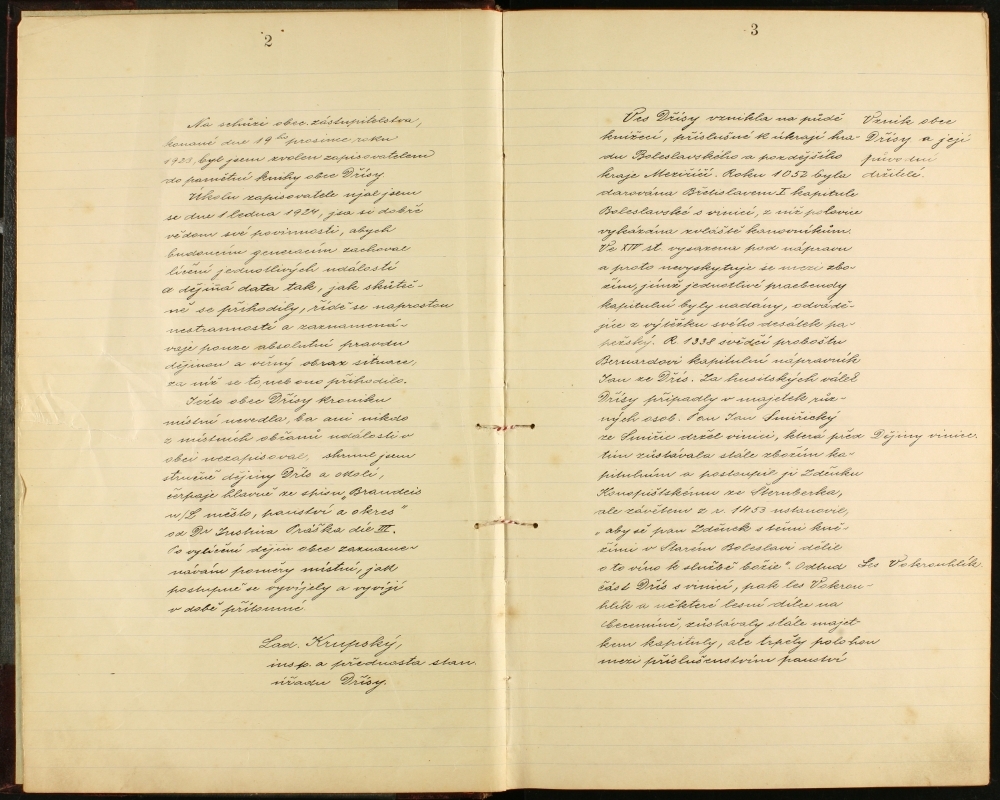 2
Na schůzi obec. zástupitelstva,
konané dne 19ho prosince roku
1923, byl jsem zvolen zapisovatelem
do pamětní knihy obce Dřísy.
Úkolu zapisovatele ujal jsem
se dne 1 ledna 1924, jsa si dobře
vědom své povinnosti, abych
budoucím generacím zachoval
líčení jednotlivých událostí
a dějiná data tak, jak skuteč-
ně se přihodily, řídě se naprostou
nestranností a zaznamená-
vaje pouze absolutní pravdu
dějinou a věrný obraz situace,
za níž se to neb ono přihodilo.
Ježto obec Dřísy kroniku
místní nevedla, ba ani nikdo
z místních občanů události v
obci nezapisoval, shrnul jsem
stručně dějiny Dřís a okolí,
čerpaje hlavně ze spisu „Brandeis
n/L město, panství a okres"
od Dr Justina Práška díl III.
Po vylíčení dějin obce zazname-
návám poměry místní, jad
postupně se vyvíjely a vyvíjí
v době přítomné.
Lad. Krupský,
insp. a přednosta stan.
úřadu Dřísy.
3
Ves Dřísy vznikla na půdě
knížecí, příslušné k úkraji hra-
du Boleslavského a pozdějšího
kraje Meziříčí. Roku 1052 byla
darována Břetislavem I kapitule
Boleslavské s vinicí, z níž polovice
vykázána zvláště kanovníkům.
Ve XIV st. vysazena pod nápravu
a proto nevyskytuje se mezi zbo-
žím, jímž jednotlivé praebendy
kapitulní byly nadány, odvádě-
jíc z výtěžku svého desátek pa-
pežský. R 1338 svědčí proboštu
Bernardovi kapitulní nápravník
Jan ze Dřís. Za husitských válek
Dřísy připadly v majetek růz-
ných osob. Pan Jan Smiřický
ze Smiřic držel vinici, která před
tím zůstávala stále zbožím ka-
pitulním a postoupil ji Zdeňku
Konopišťskému ze Šternberka,
ale závětem z r. 1453 ustanovil,
„aby sě pan Zdeněk s těmi kně-
žími v Starém Boleslavi dělil
o to víno k službě božie". Odtud
část Dřís s vinicí, pak les Vokrou-
hlík a některé lesní dílce na
Obecmíně, zůstávaly stále majet-
kem kapituly, ale trpěly polohou
mezi příslušenstvím panství
Vznik obce
Dřísy a její
původní
držitelé.
Dějiny vinic.
Les Vokrouhlík.